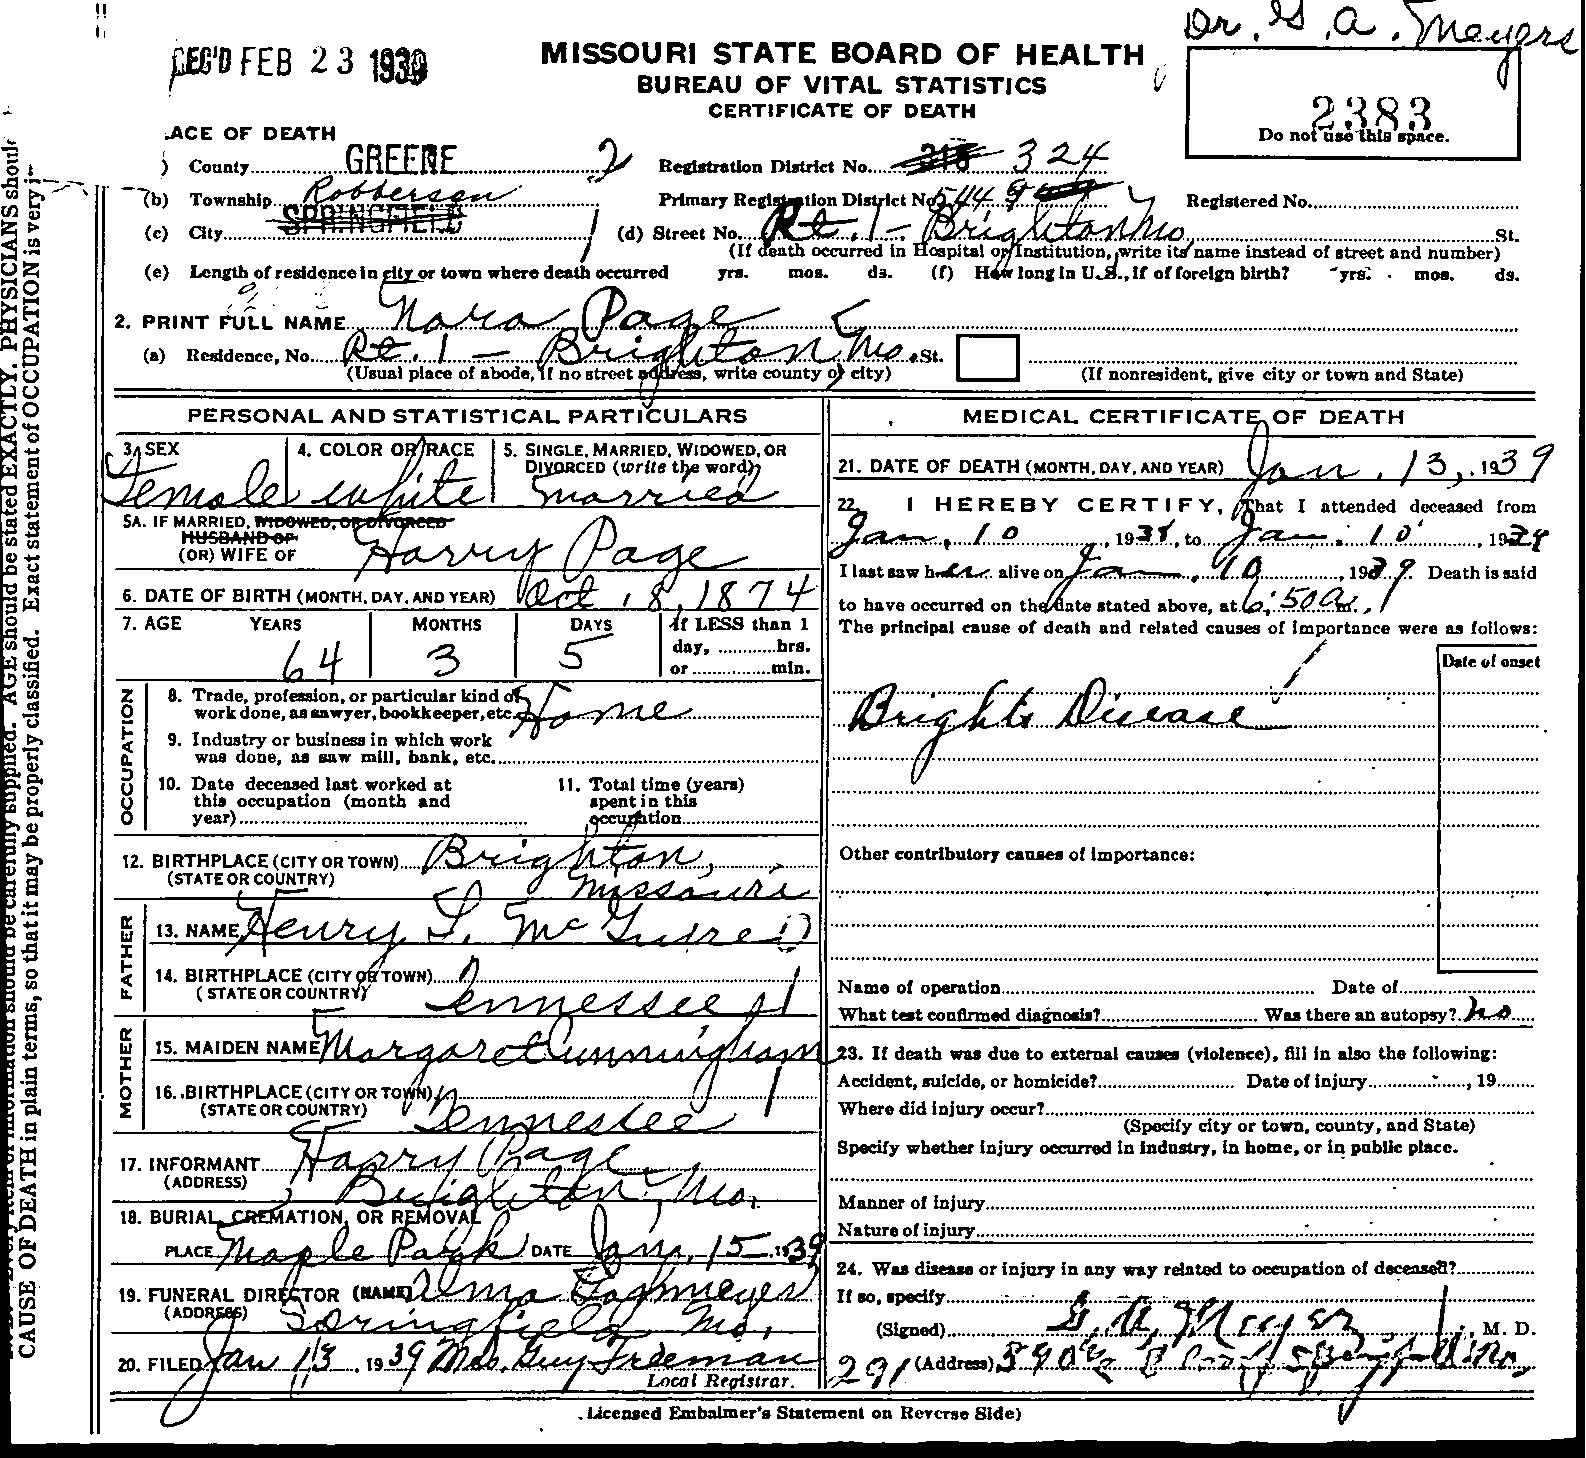 Dr. G. A. Meyers
REC'D FEB 23 1939
MISSOURI STATE BOARD OF HEALTH
BUREAU OF VITAL STATISTICS
CERTIFICATE OF DEATH
2383
Do not use this space.
ACE OF DEATH
) County GREENE 2 Registration District No. 318 324
(b) Township Robberson Primary Registration District No. 5449 Registered No.
(c) City SPRINGFIELD 1 (d) Street No. Rt. 1 - Brighton Mo. St.
(If death occurred in Hospital or Institution, write its name instead of street and number)
(e) Length of residence in city or town where death occurred yrs. mos. ds. (f) How long in U.S., if of foreign birth? yrs. mos. ds.
2. PRINT FULL NAME Nora Page
(a) Residence, No. Rt. 1 - Brighton, Mo. St.
(Usual place of abode, if no street address, write county or city) (If nonresident, give city or town and State)
PERSONAL AND STATISTICAL PARTICULARS
3. SEX 4. COLOR OR RACE 5. SINGLE, MARRIED, WIDOWED, OR
DIVORCED (write the word)
Female white married
5A. IF MARRIED, WIDOWED, OR DIVORCED
HUSBAND OF
(OR) WIFE OF Harry Page
6. DATE OF BIRTH (MONTH, DAY, AND YEAR) Oct. 8, 1874
7. AGE YEARS MONTHS DAYS If LESS than 1
day, hrs.
64 3 5 or min.
OCCUPATION
8. Trade, profession, or particular kind of
work done, as sawyer, bookkeeper, etc. Home
9. Industry or business in which work
was done, as saw mill, bank, etc.
10. Date deceased last worked at
this occupation (month and
year)
11. Total time (years)
spent in this
occupation
12. BIRTHPLACE (CITY OR TOWN) Brighton,
(STATE OR COUNTRY) Missouri
FATHER
13. NAME Henry L. McGuire
14. BIRTHPLACE (CITY OR TOWN)
(STATE OR COUNTRY) Tennessee
MOTHER
15. MAIDEN NAME Margaret Cunningham
16. BIRTHPLACE (CITY OR TOWN)
(STATE OR COUNTRY) Tennessee
17. INFORMANT Harry Page
(ADDRESS) Brighton, Mo.
18. BURIAL, CREMATION, OR REMOVAL
PLACE Maple Park DATE Jan. 15, 1939
19. FUNERAL DIRECTOR (NAME) Alma Lohmeyer
(ADDRESS) Springfield Mo.
20. FILED Jan 13, 1939 Mrs. Guy Freeman
Local Registrar.
MEDICAL CERTIFICATE OF DEATH
21. DATE OF DEATH (MONTH, DAY, AND YEAR) Jan. 13, 1939
22. I HEREBY CERTIFY, That I attended deceased from
Jan. 10, 1938, to Jan. 10, 1939
I last saw her alive on Jan. 10, 1939. Death is said
to have occurred on the date stated above, at 6:50 a.m.
The principal cause of death and related causes of importance were as follows:
Date of onset
Brights Disease
Other contributory causes of importance:
Name of operation Date of
What test confirmed diagnosis? Was there an autopsy? no
23. If death was due to external causes (violence), fill in also the following:
Accident, suicide, or homicide? Date of injury , 19
Where did injury occur?
(Specify city or town, county, and State)
Specify whether injury occurred in industry, in home, or in public place.
Manner of injury
Nature of injury
24. Was disease or injury in any way related to occupation of deceased?
If so, specify
(Signed) G. A. Meyer M. D.
291 (Address)
.Licensed Embalmer's Statement on Reverse Side)
AGE should be stated EXACTLY. PHYSICIANS should
CAUSE OF DEATH in plain terms, so that it may be properly classified. Exact statement of OCCUPATION is very i-